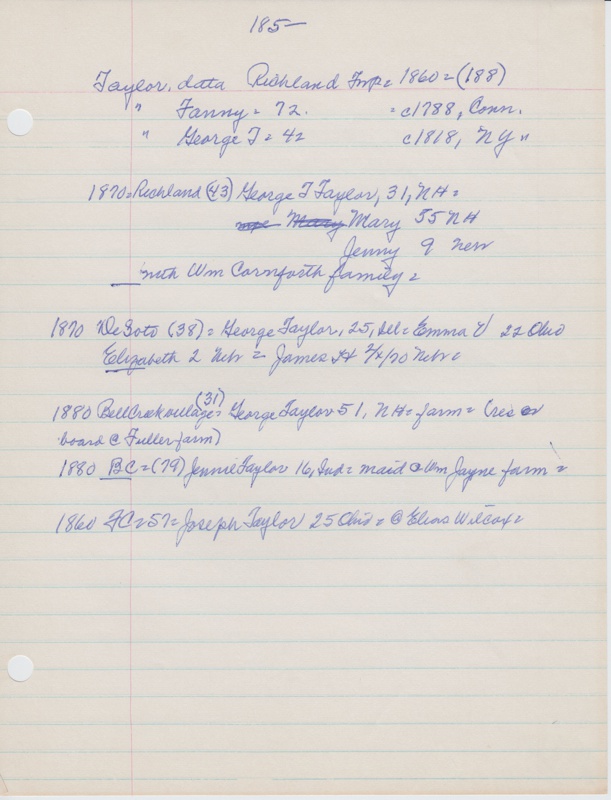 185-
Taylor data Richland Imp= 1860=(188)
" Fanny= 72. =c1788, Conn.
" George T= 42 c1818, NY"
1870=Richland (43) George T Taylor, 31, NH=
Mary 35 NH
Jenny 9 New
with Wm Cornforth family=
1870 DeSoto (38)= George Taylor, 25, Del= Emma V 22 Ohio
Elizabeth 2 Nebr = James H 2/70 Nebr=
(31)
1880 BellCreek village= George Taylor 51, NH= farm= (res or
board @ Fuller farm)
1880 BC=(79) Jennie Taylor 16, Ind= maid @ Wm Jayne farm=
1860 FC=57= Joseph Taylor 25 Ohio= @ Elias Wilcox=